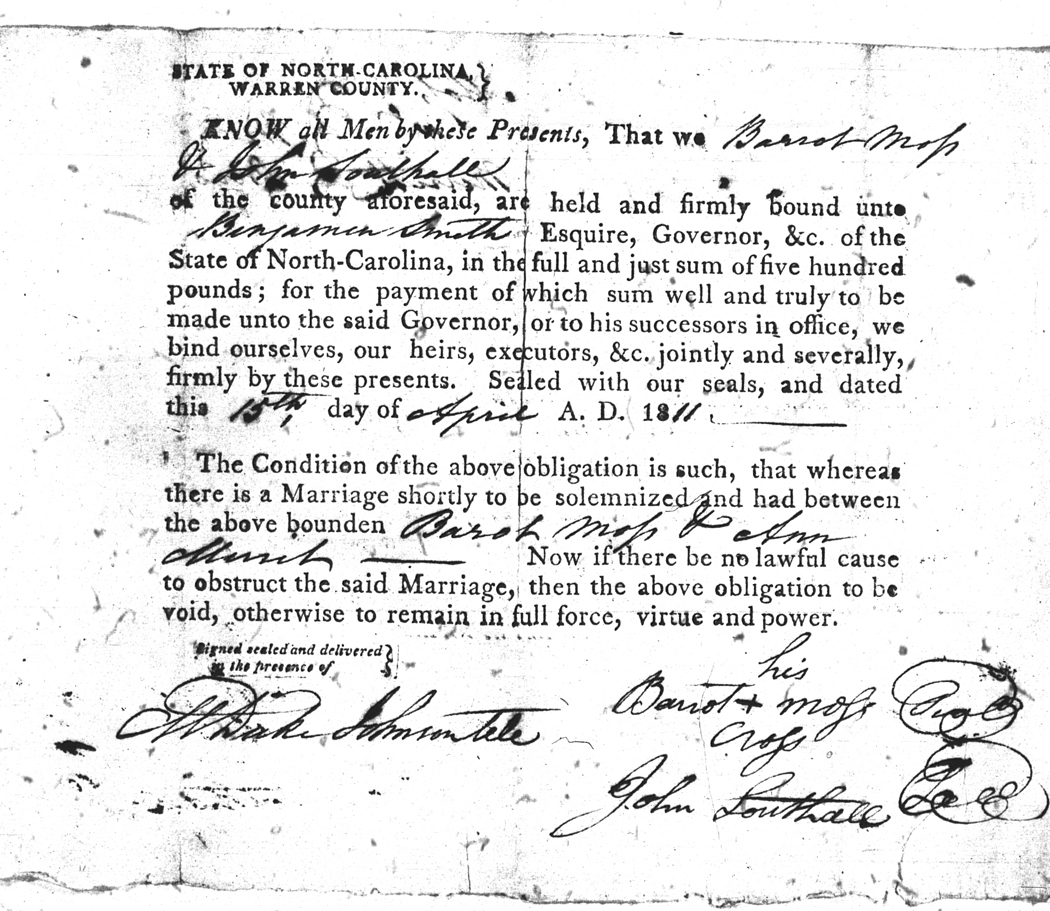 STATE OF NORTH-CAROLINA,
WARREN COUNTY.
KNOW all Men by these Presents, That we Barrot Moss
& John Southall
of the county aforesaid, are held and firmly bound unto
Benjamin Smith Esquire, Governor, &c. of the
State of North-Carolina, in the full and just sum of five hundred
pounds; for the payment of which sum well and truly to be
made unto the said Governor, or to his successors in office, we
bind ourselves, our heirs, executors, &c. jointly and severally,
firmly by these presents. Sealed with our seals, and dated
this 15th, day of April A. D. 1811.
The Condition of the above obligation is such, that whereas
there is a Marriage shortly to be solemnized and had between
the above bounden Barot Moss & Ann
Now if there be no lawful cause
to obstruct the said Marriage, then the above obligation to be
void, otherwise to remain in full force, virtue and power.
Signed sealed and delivered
in the presence of
his
Barrot + Moss Seal
Cross
John Southall Seal